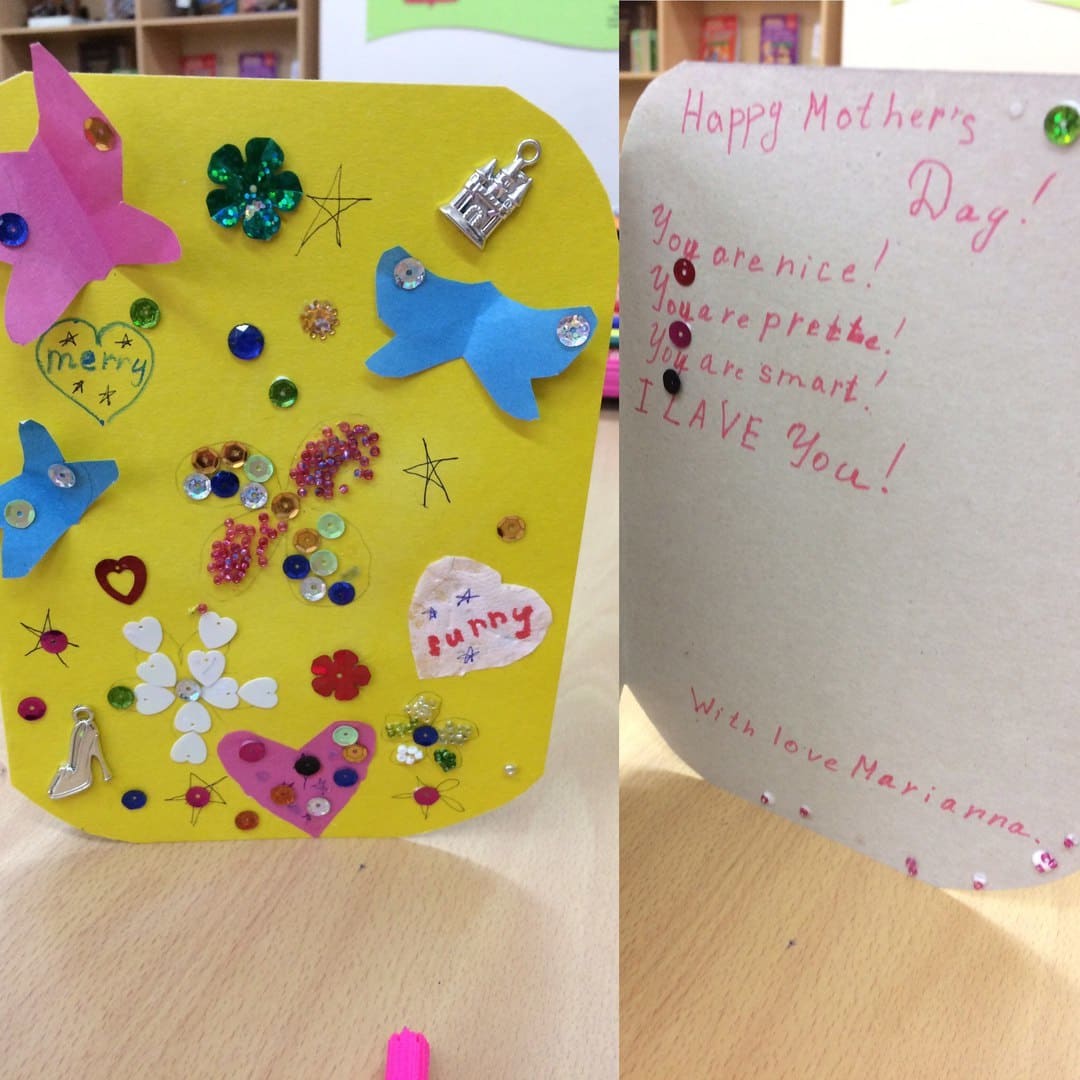 merry
Happy Mother's
Day!
You are nice!
You are prette!
You are smart!
I LAVE You!
With love Marianna.